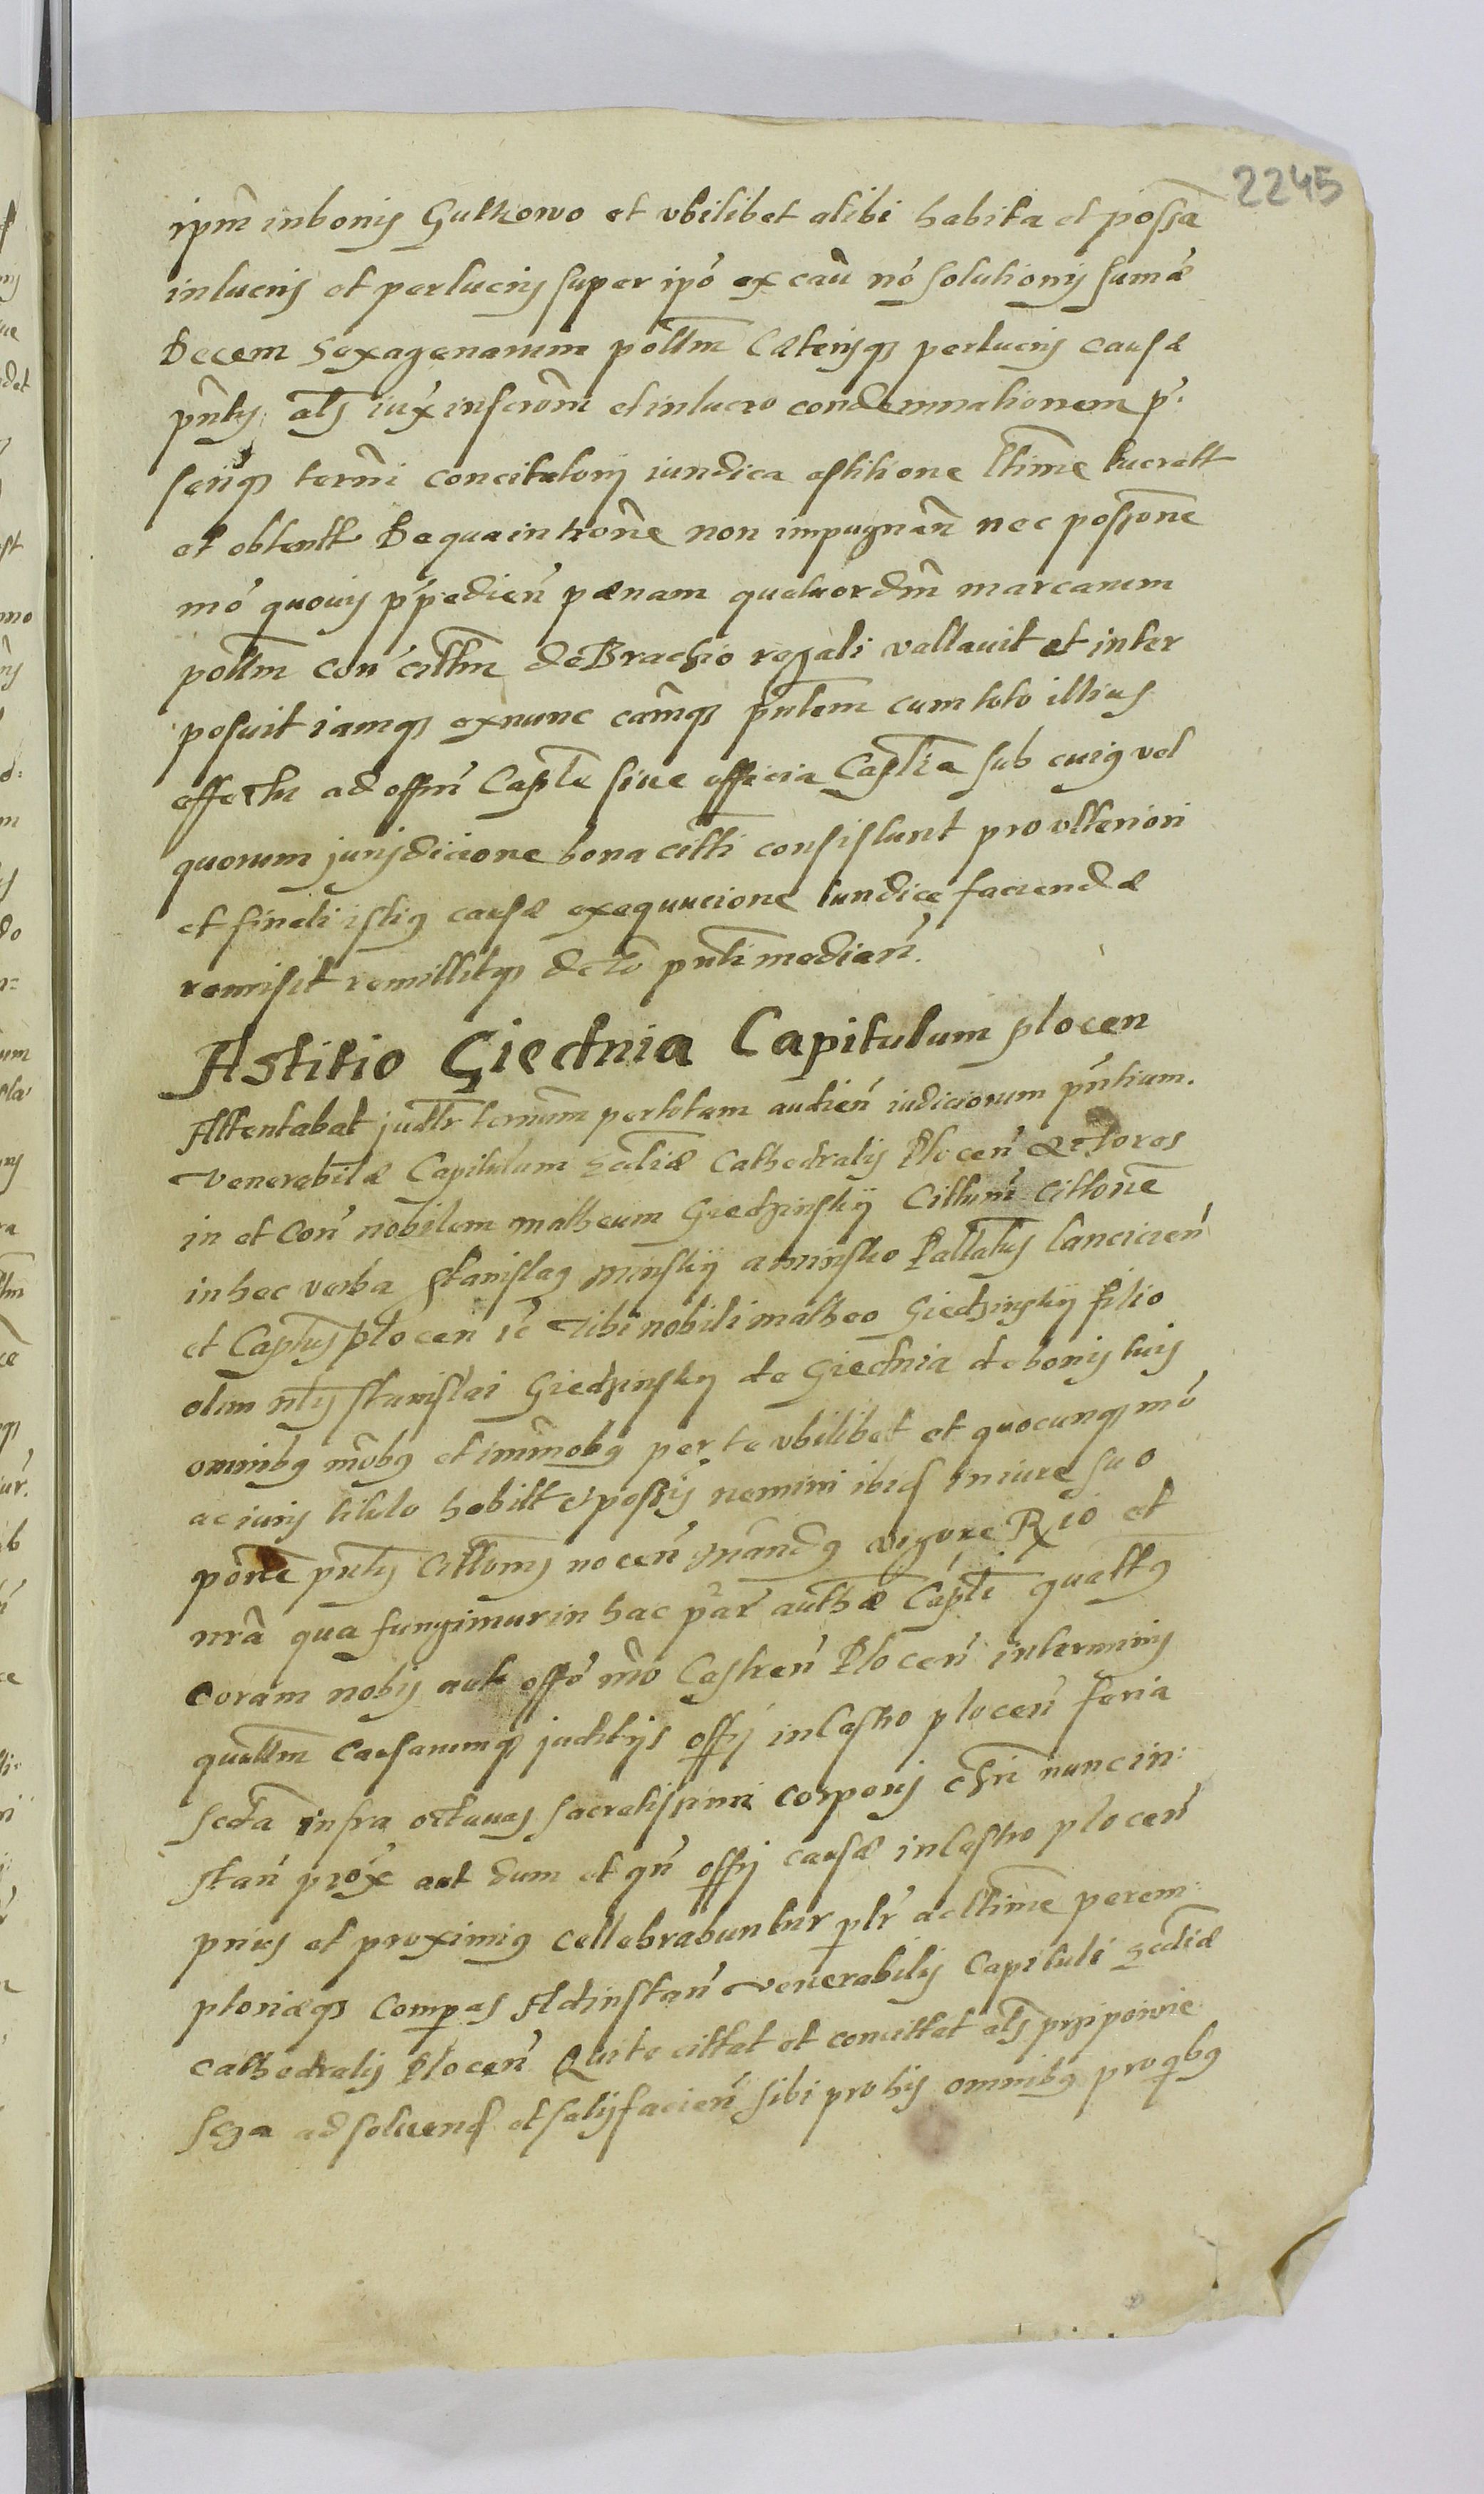 2245
ipm̃ in bonis Gulkowo et vbilibet alibi habita et possa
in lucris et perlucris super ipo ex cau no solutionis sumæ
Decem sexagenarum polł̃m Cæterisq perlucris causæ
pñtis als iux inscrom̃ et in lucro condemnationem p
seiiq termi concitatorij iuridica astitione ltime lucratt
et obtentt De qua introne non impugnañ nec possone
mo quouis p̃pedień pænam quatuordm̃ marcarum
polł̃m con cittm̃ de Brachio regali vallauit et inter
posuit iamq ex nunc cam̃q pñtem cum toto illius
effectu ad offm̃ Capłe siue officia Capłia sub cuius vel
quorum jurisdicione bona citti consistunt pro vlteriori
et finali istius causæ exequucione iuridice faciendæ
remisit remittitq dcto pñti medień.
Astitio Giednia Capitulum plocen
Attentabat judłr termm̃ per totam audień iudiciorum pñtium.
Venerabilæ Capitulum Ecclæ Cathedralis Plocen actores
in et con nobilem Matheum Giedzinskij Cittum̃ Cittone
in hec verba Stanislaus Minskij a Minsko Pallatus lancicień
et Captus plocen ic Tibi nobili Matheo Giedzinskij filio
olim nlis Stanislai Giedzinskij de Giednia de bonis tuis
omnibus mobus et imm̃obus per te vbilibet et quocunq mo
ac iuris titulo habitt et possis nemini ibid in iure suo
pone pñtis Cittonis nocen mandus vigore Rio et
nra qua fungimur in hac par autha Capłi quattus
coram nobis aut offo nro Castren Plocen in terminis
querełm̃ causarumq juditijs offij in Castro plocen feria
sexta infra octauas sacratissimi corporis chri nunc in:
stan prox aut dum et qn offij causæ in Castro plocen
prius et proximius cellebrabuntur płr ac ltime perem:
ptorieq Compas Ad instan venerabilis Capituli Ecclæ
Cathedralis Plocen Qui te cittat et concittat als przipowie
sga ad soluend et satisfacien sibi pro his omnibus pro qbus